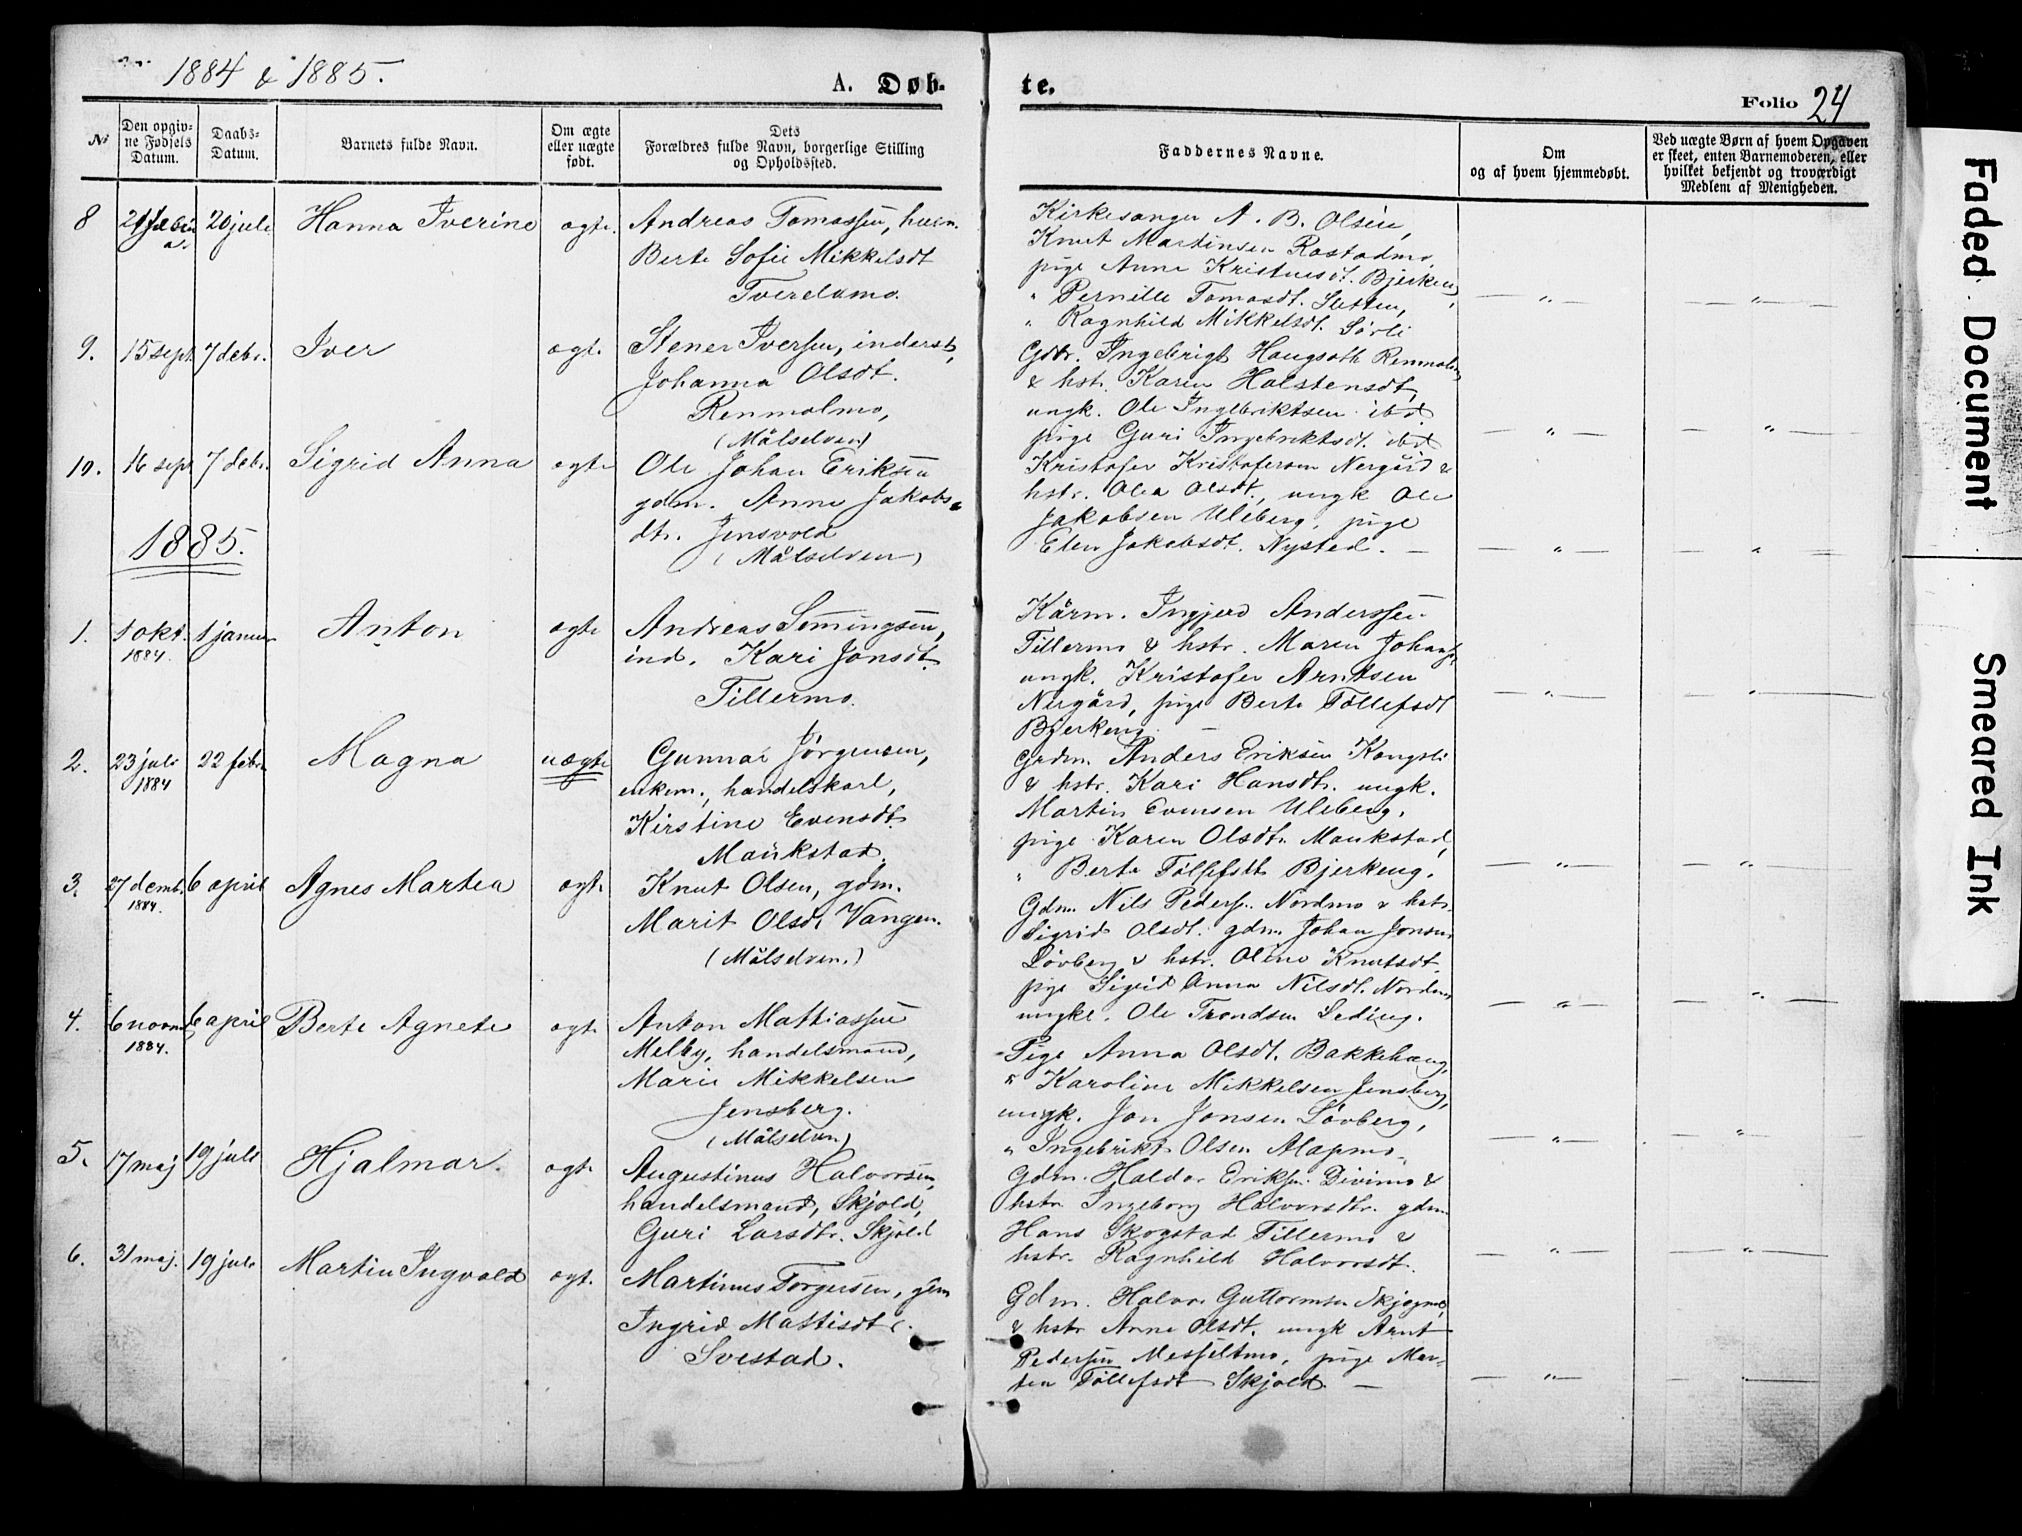 1884 & 1885.
A. Døb-
te.
Folio 24
No
Den opgiv-
ne Fødsels
Datum.
Daabs-
Datum.
Barnets fulde Navn.
Om ægte
eller uægte
født.
Dets
Forældres fulde Navn, borgerlige Stilling
og Opholdssted.
Faddernes Navne.
Om
og af hvem hjemmedøbt.
Ved uægte Børn af hvem Opgaven
er skeet, enten Barnemoderen, eller
hvilket bekjendt og troværdigt
Medlem af Menigheden.
8 20 juli Hanna Iverine ægte. Andreas Tomassen, husm.
Berte Sofie Mikkelsdt
Tverelvmo.
Kirkesanger A. B. Olsen,
Knut Martinsen Rostadmo
pige Anne Bjerkeng
" Pernille Tomasdt. Sletten,
" Ragnhild Mikkelsdt. Sørli
9. 15 sept. 7 debr. Iver ægte. Stener Iversen, inderst,
Johanna Olsdt.
Renmolmo,
(Målselven)
Gdbr. Ingebrigt Haugseth
& hst. Karen Halstensdt,
ungk. Ole Ingebriktsen ibid
pige Guri Ingebriktsdt. ibid
10. 16 sept 7 debr. Sigrid Anna ægte Ole Johan Eriksen
gdm. Anne Jakobs-
dtr. Jensvold
(Målselven)
Kristofer Kristofersen Nergård &
hstr. Olea Olsdt., ungk Ole
Jakobsen Uleberg, pige
Elen Jakobsdt. Nysted. —
1885.
1. 1 okt. 1 januar Anton ægte Andreas Simingsen,
1884.
ind. Kari Jonsdt.
Tillermo.
Kårm. Ingjerd Anderssen
Tillermo & hstr. Maren
ungk. Kristofer Arntsen
Nergård, pige Berte Tollefsdt
Bjerkeng. —
2. 23 juli 22 febr. Magna uægte Gunnar Jørgensen,
1884
enkem., handelskarl,
Kirstine Evensdt.
Maukstad.
Grdm. Anders Eriksen Kongsli
& hstr. Kari Hansdtr. ungk.
Martin Evensen Uleberg,
pige Karen Olsdtr. Maukstad,
" Berte Tollefsdt Bjerkeng.
3. 27 decmb. 6 april Agnes Martea ægte Knut Olsen, gdm.
1884.
Marit Olsdt. Vangen.
(Målselven.)
Gdm. Nils Peders. Nordmo & hstr
Sigrid Olsdt. gdm. Johan Jonsen
Løvberg & hstr. Oline Knutsdt.
pige Sigrid Anna Nilsdt. Nordmo
ungk. Ole Trondsen Leding.
4. 6 novmb 6 april Berte Agnete ægte Anton Mathiassen
1884.
Melby, handelsmand,
Marie Mikkelsen
Jensberg.
(Målselven)
Pige Anna Olsdt. Bakkehaug,
" Karoline Mikkelsen Jensberg,
ungk. Jon Jonsen Løvberg,
" Ingebrikt Olsen Alapmo.
5. 17 maj 19 juli Hjalmar. ægte Augustinus Halvorsen,
handelsmand, Skjold,
Guri Larsdtr. Skjold
Gdm. Haldo Eriksen Divimo &
hstr. Ingeborg Halvorsdtr. gdm
Hans Skogstad Tillermo &
hstr. Ragnhild Halvorsdt.
6. 31 maj. 19 juli Martin Ingvald ægt. Martinus Torgersen, gdm
Ingrid Mattisdtr.
Svestad.
Gdm. Halvo Guttormsen
& hstr Anne Olsdt. ungk Arnt
Pedersen Messeltmo, pige Mar-
ten Tollefsdt Skjold. —
Faded Document
Smeared Ink